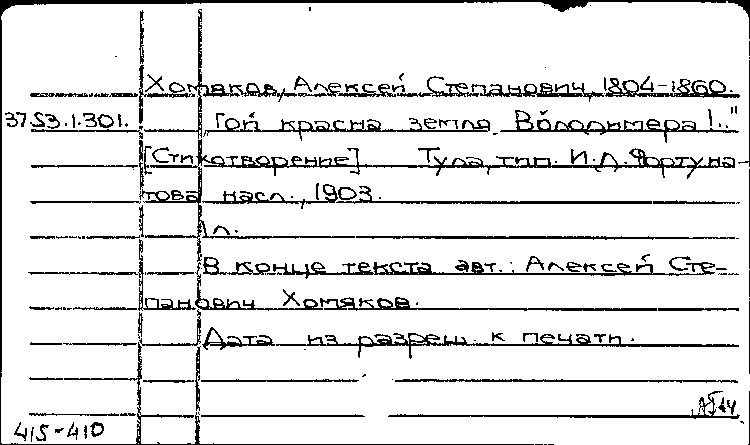 Хомяков, Алексей Степанович, 1804-1860.
37.53.1.301. "Гой красна земля Володимера!.."
[Стихотворение]. Тула, тип. И.Д. Фортуна-
това насл., 1903.
1л.
В конце текста авт.: Алексей Сте-
панович Хомяков.
Дата из разреш. к печати.
415-410